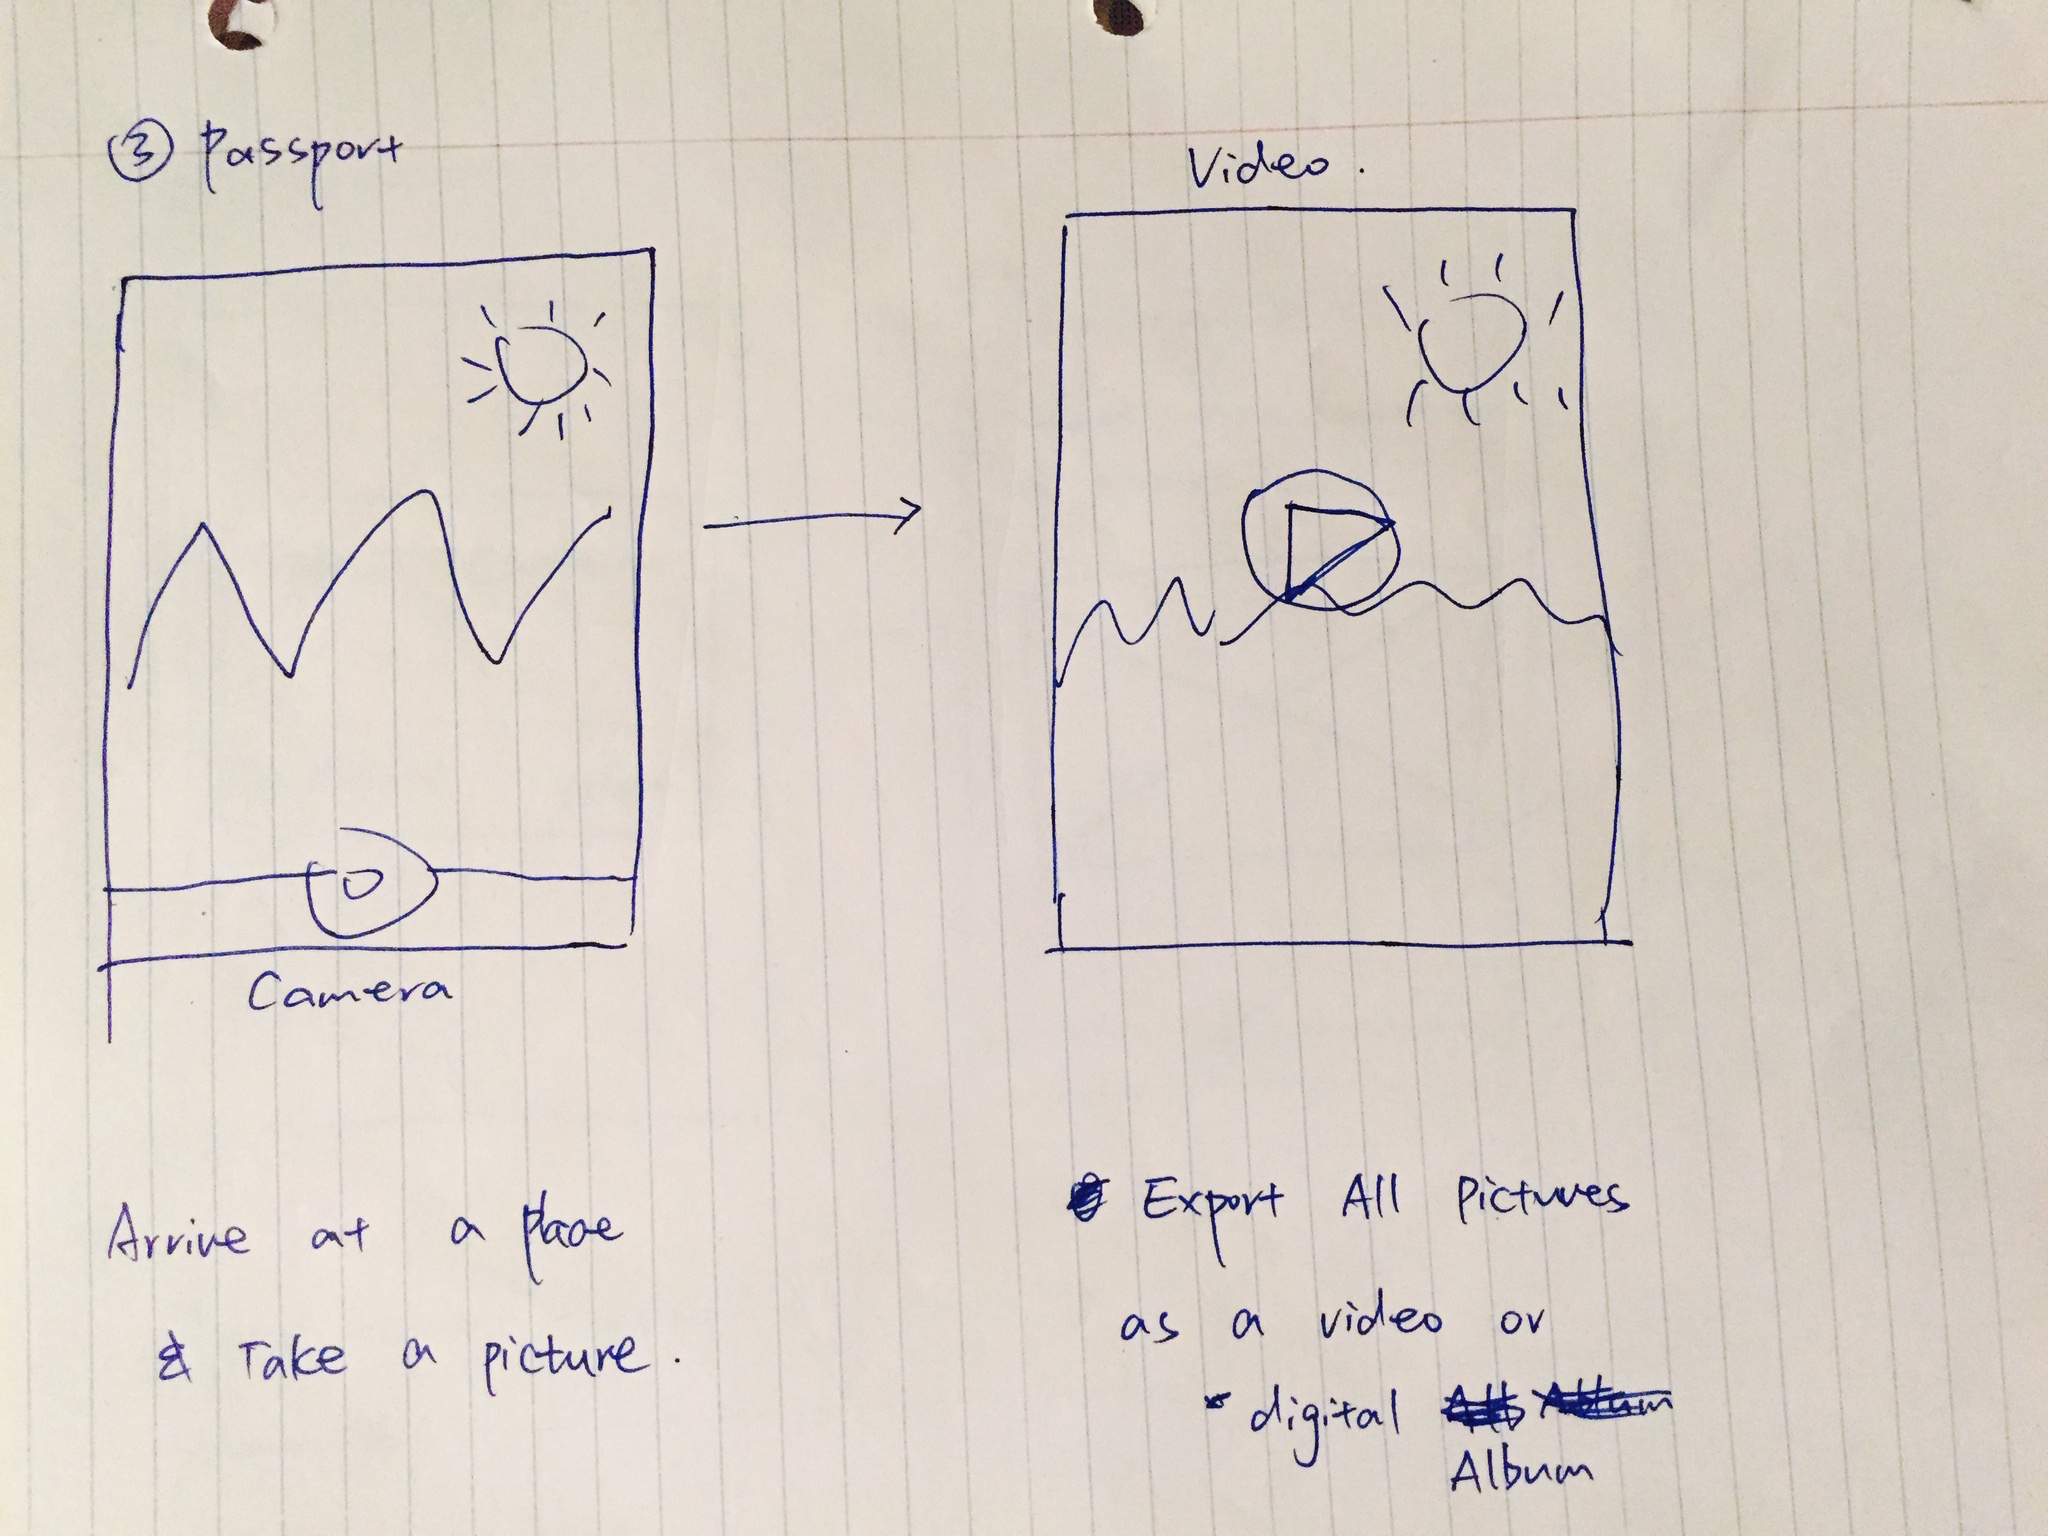 ③ Passport
Video.
Camera
Arrive at a place
& Take a picture.
Export All Pictures
as a video or
digital
Album